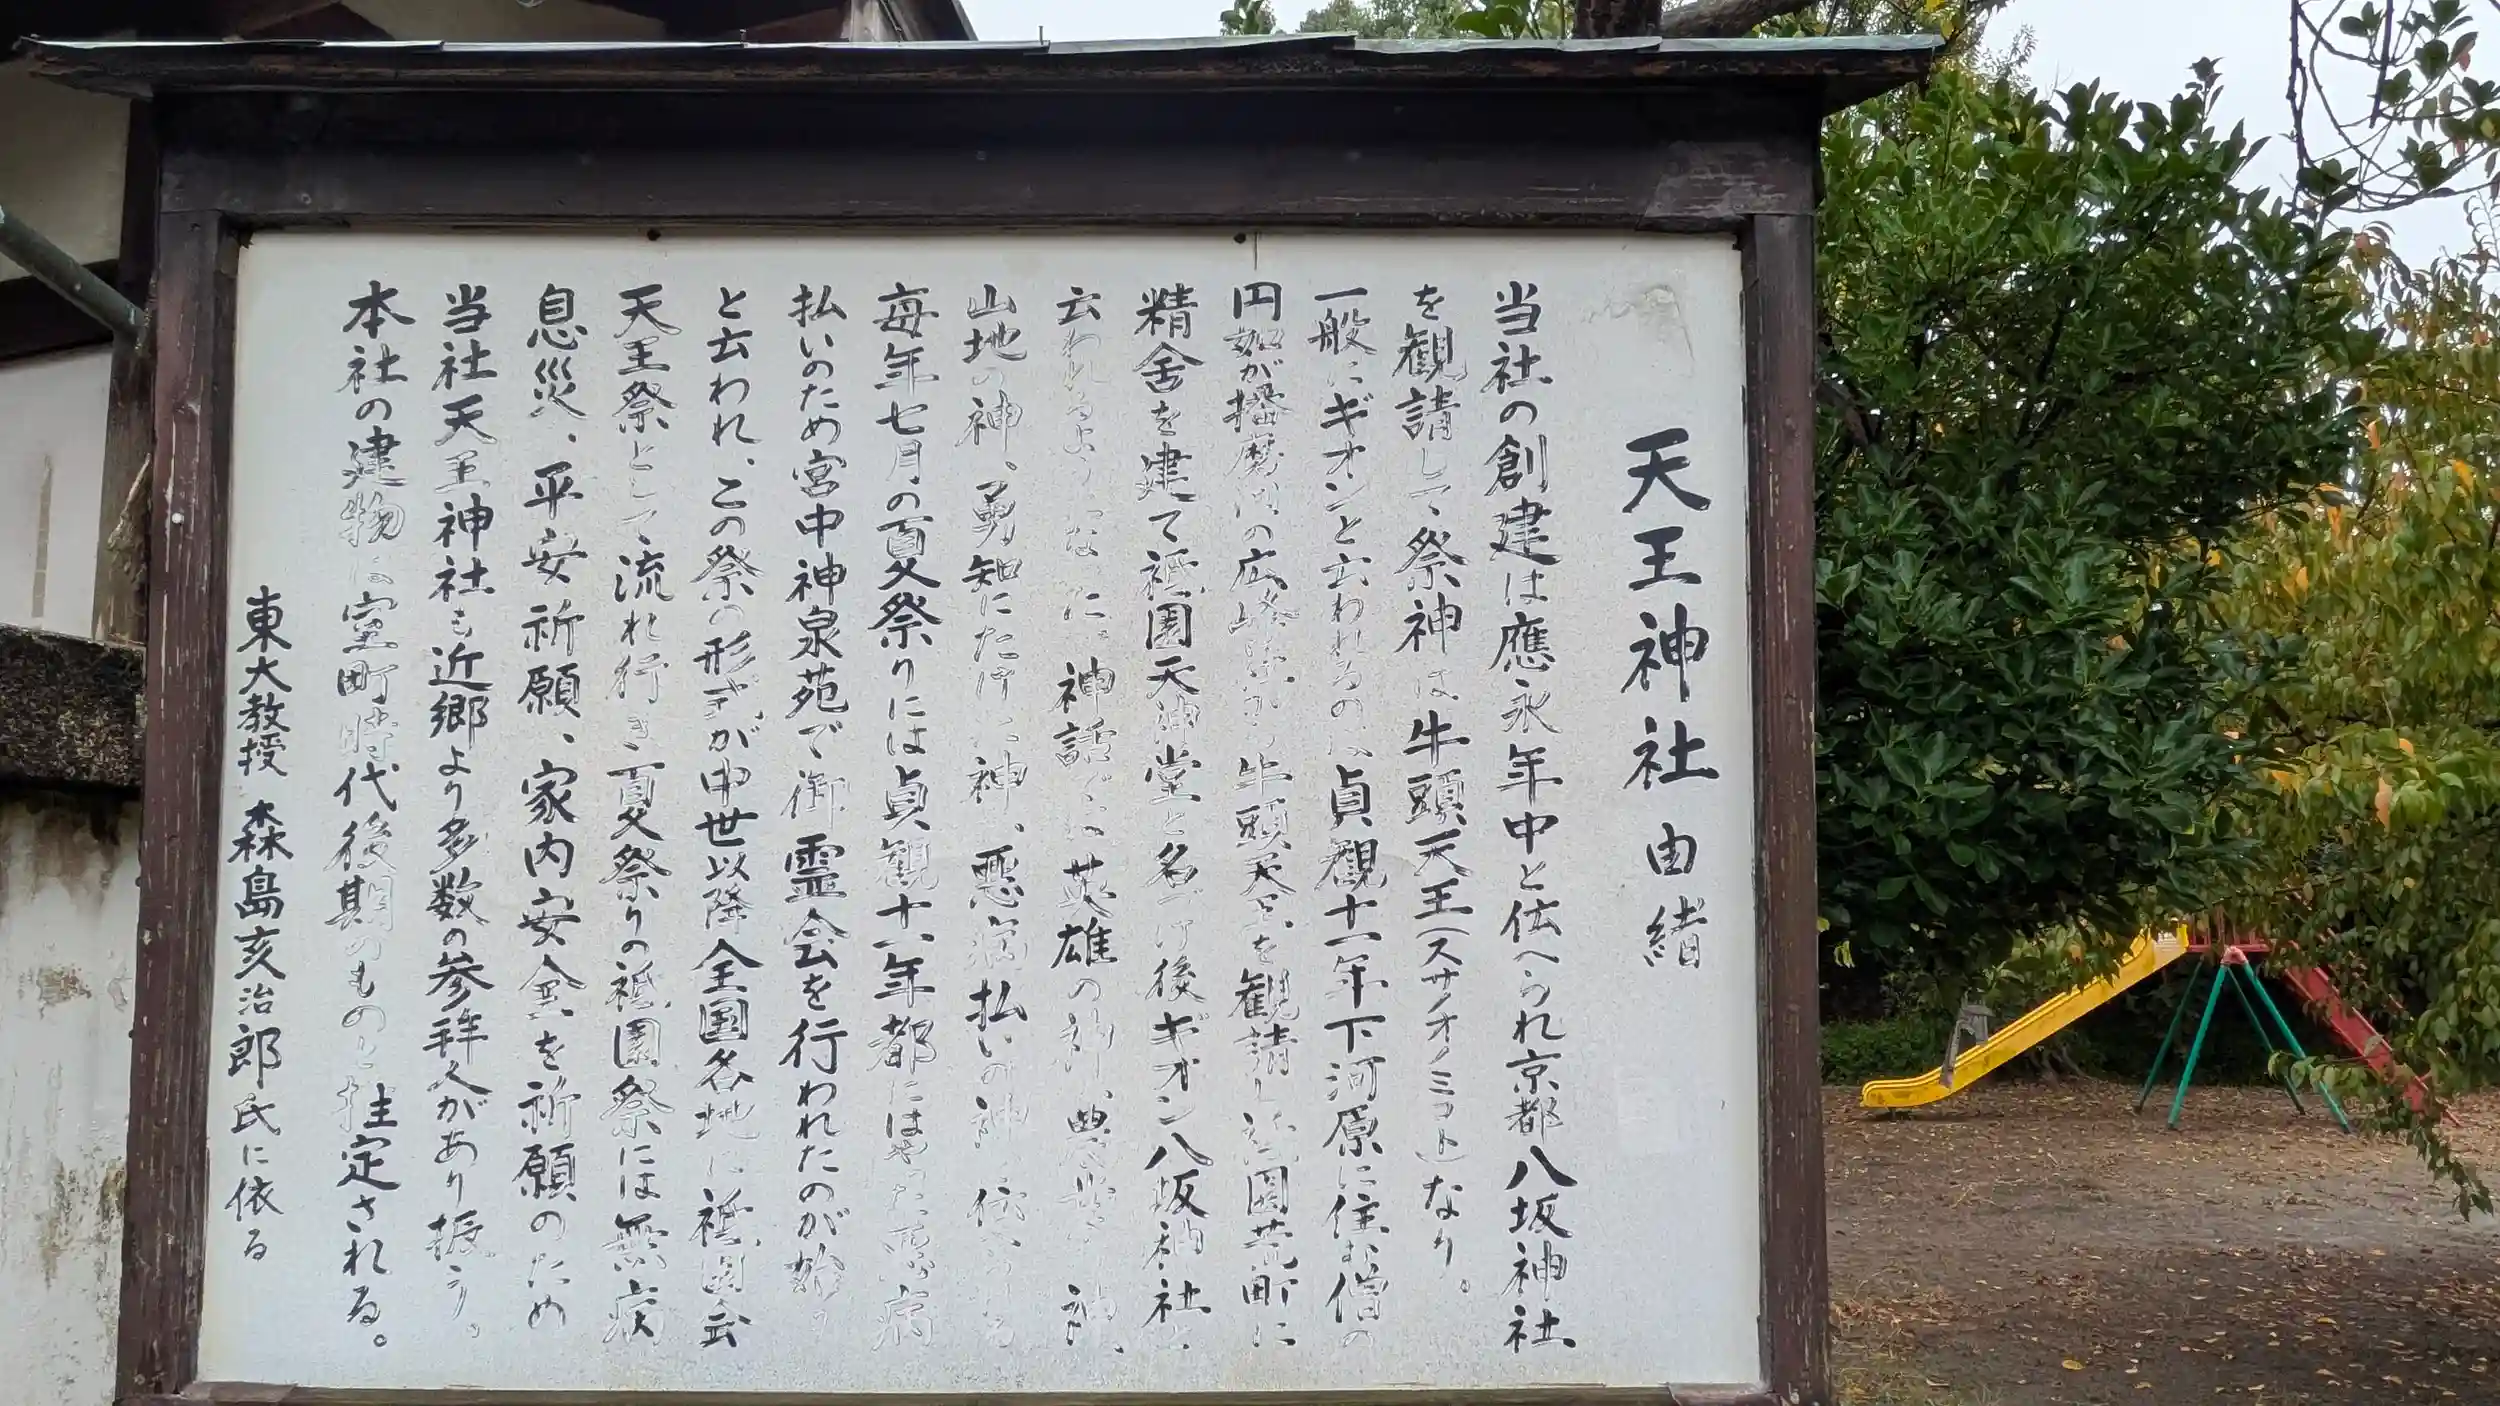 天王神社 由緒
当社の創建は應永年中と伝へられ京都八坂神社
を観請して祭神は牛頭天王(スサノオノミコト)なり。
一般にギオンと云われるのは貞観十一年下河原に住む僧の
円如が播磨国の広峰 牛頭天王を観請し祇園荒町に
精舎を建て祇園天神堂と名づけ後ギオン八坂神社と
云われるようになった。神話では英雄の神、 神、
山地の神、勇知にたけた神、悪病払いの神 伝
毎年七月の夏祭りには貞観十一年都にはやった悪病
払いのため宮中神泉苑で御霊会を行われたのが始り
と云われ、この祭の形式が中世以降全国各地に祇園会
天王祭として流れ行き、夏祭りの祇園祭には無病
息災、平安祈願、家内安全を祈願のため
当社天王神社も近郷より多数の参拝人があり振う。
本社の建物は室町時代後期のものと推定される。
東大教授 森島亥治郎氏に依る